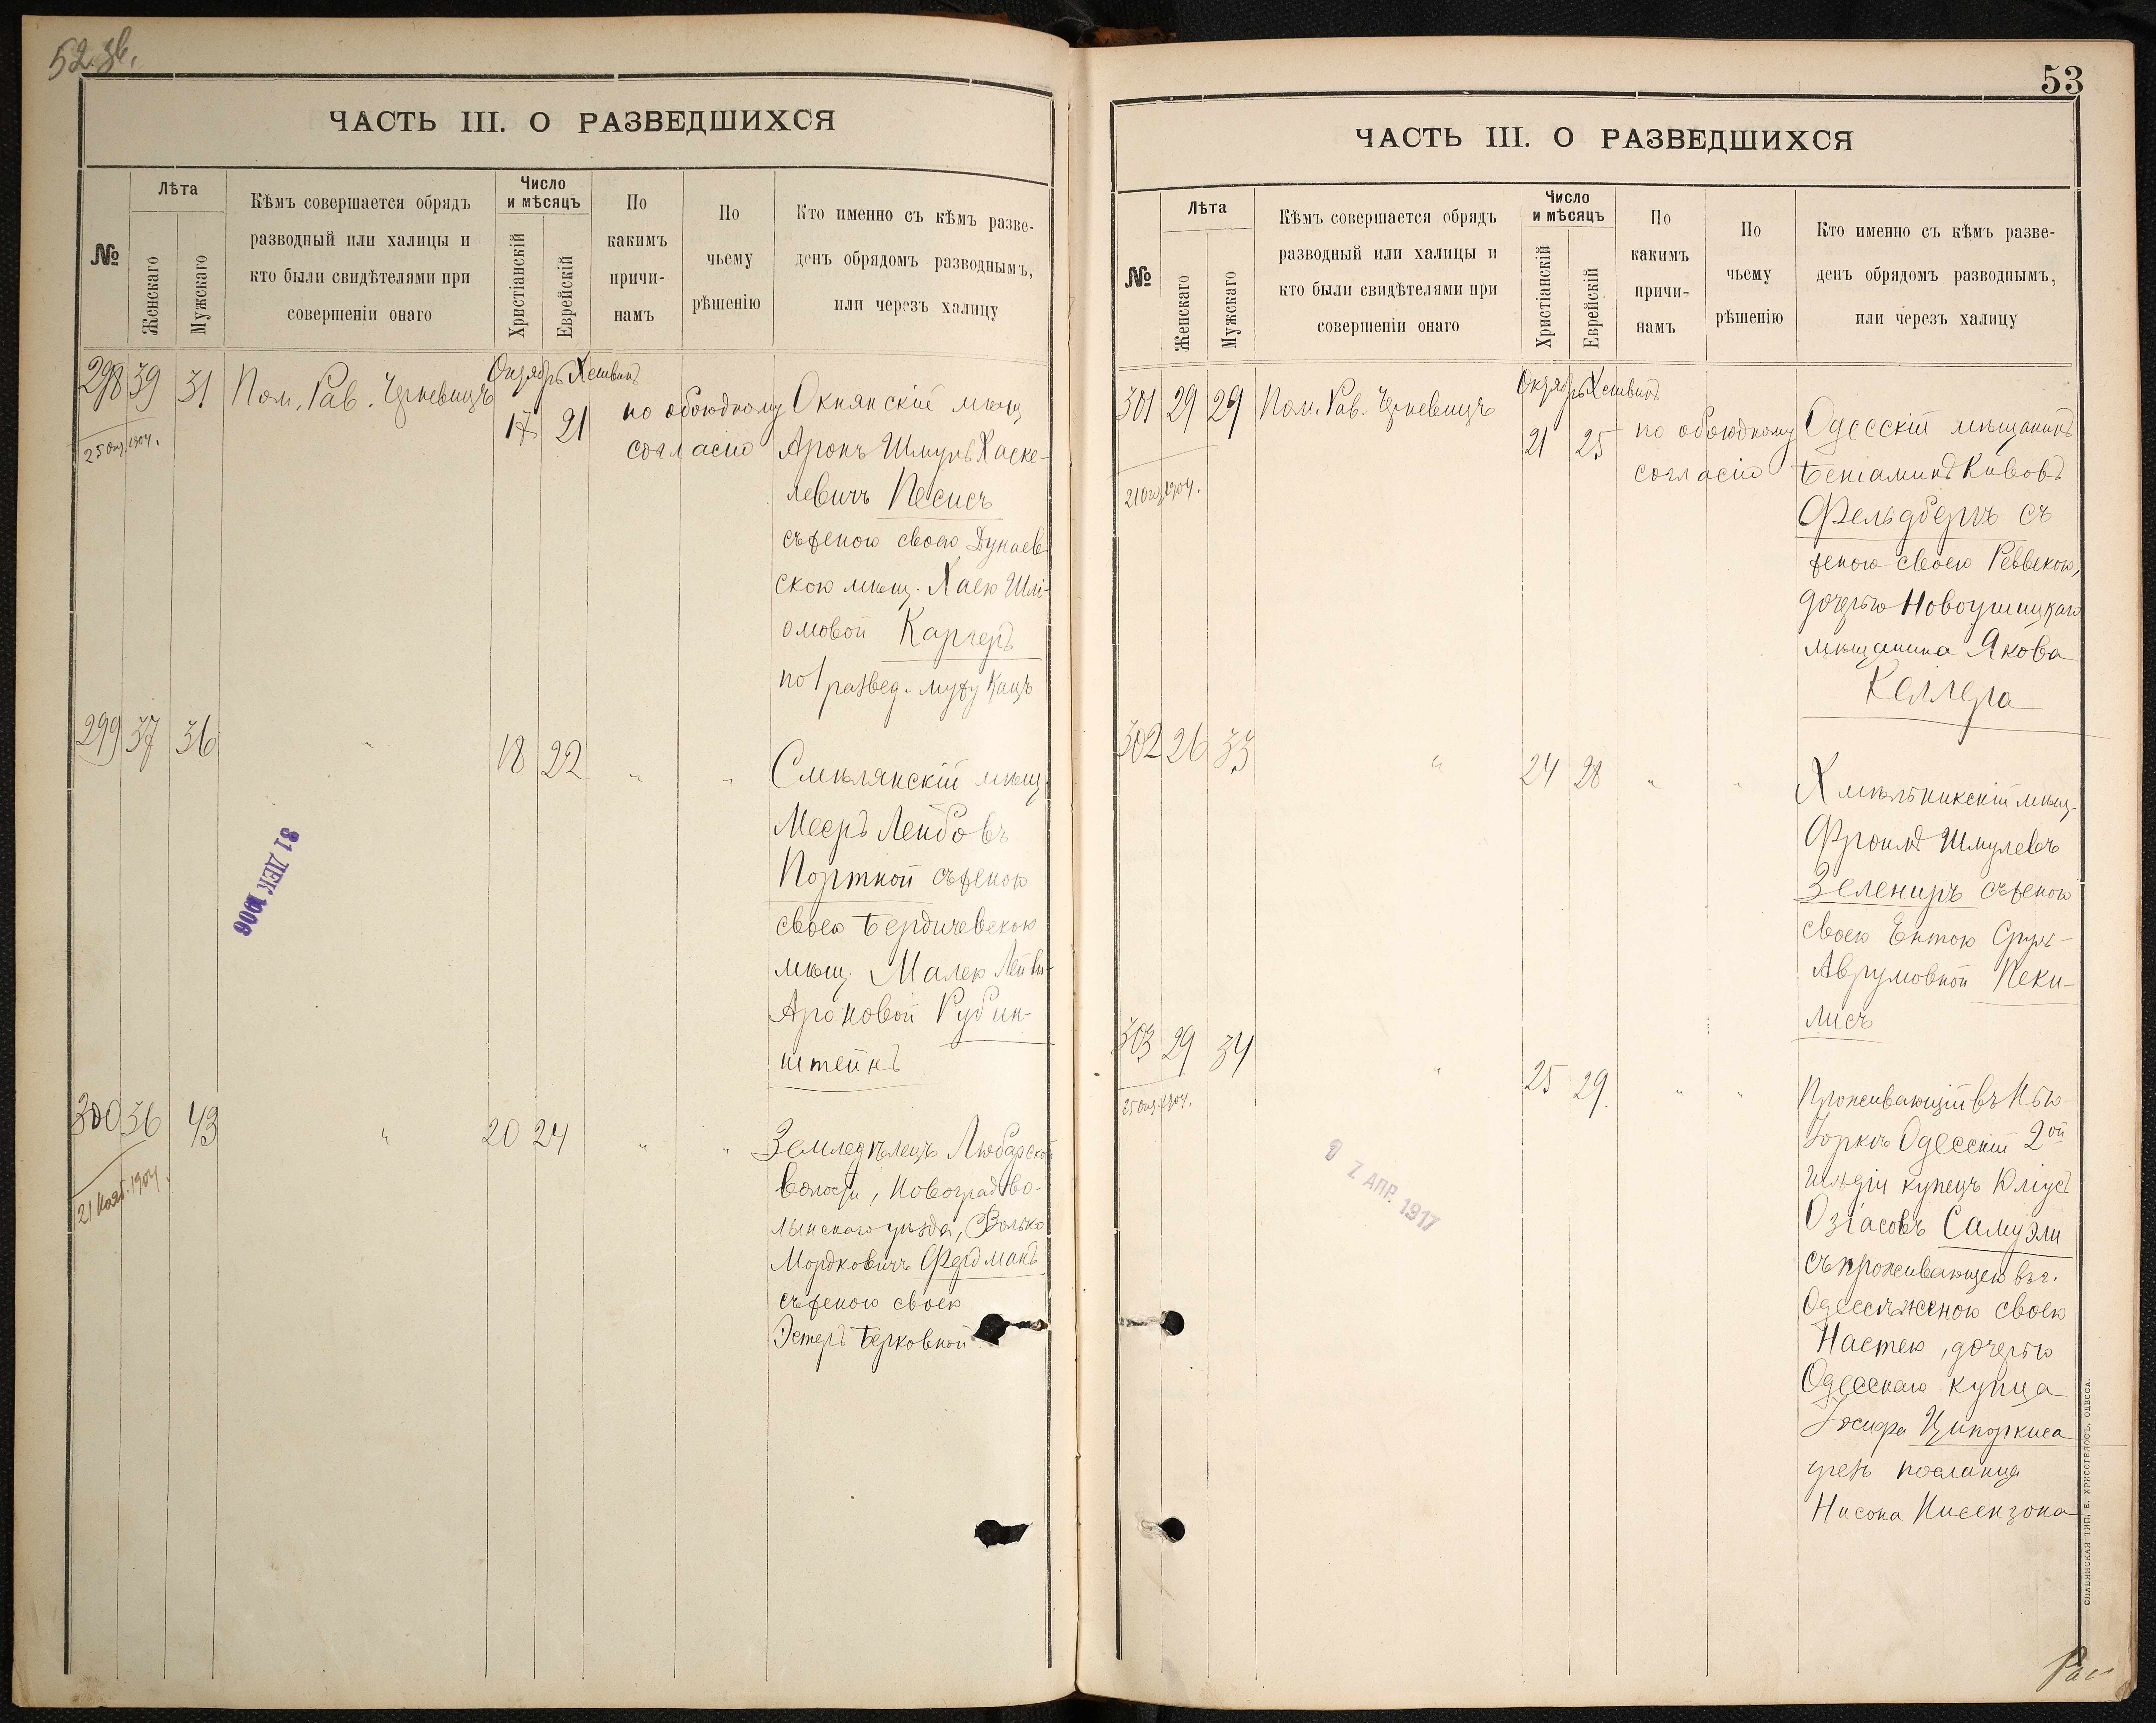 52 зв.
ЧАСТЬ III. О РАЗВЕДШИХСЯ
№
Лѣта
Женскаго
Мужскаго
Кѣмъ совершается обрядъ
разводный или халицы и
кто были свидѣтелями при
совершеніи онаго
Число
и мѣсяцъ
Христіанскій
Еврейскій
По
какимъ
причи-
намъ
По
чьему
рѣшенію
Кто именно съ кѣмъ разве-
денъ обрядомъ разводнымъ,
или черезъ халицу
298 39 31 Пом. Рав. Черневицъ
Октябрь Хешванъ
17 21
25 Окт. 1904.
по обоюдному
согласію
Окнянскій мѣщ
Аронъ Шмуль Хаске-
левичъ Песисъ
съ женою своею Дунаев-
скою мѣщ. Хаею Шлі-
омовой Каргеръ
по 1 развед. мужу Кацъ
299 37 36 " 18 22 " "
Смѣлянскій мѣщ.
Мееръ Лейбовъ
Портной съ женою
своею Бердичевскою
мѣщ. Малею Лейви-
Ароновой Рубин-
штейнъ
31 ДЕК 1906
300 36 43 " 20 24 " "
21 Нояб. 1904.
Земледѣлецъ Любарской
волости, Новоградво-
лынскаго уѣзда, Волько
Мордковичъ Фердманъ
съ женою своею
Эстеръ Берковной
53
ЧАСТЬ III. О РАЗВЕДШИХСЯ
№
Лѣта
Женскаго
Мужскаго
Кѣмъ совершается обрядъ
разводный или халицы и
кто были свидѣтелями при
совершеніи онаго
Число
и мѣсяцъ
Христіанскій
Еврейскій
По
какимъ
причи-
намъ
По
чьему
рѣшенію
Кто именно съ кѣмъ разве-
денъ обрядомъ разводнымъ,
или черезъ халицу
301 29 29 Пом. Рав. Черневицъ
Октябрь Хешванъ
21 25
21 Окт. 1904.
по обоюдному
согласію
Одесскій мѣщанинъ
Беніаминъ Кивовъ
Фельдбергъ съ
женою своею Реввекою,
дочерью Новоушицкаго
мѣщанина Якова
Келлера
302 26 33 " 24 28 " "
Хмѣльникскій мѣщ.
Фроимъ Шмулевъ
Зелениръ съ женою
своею Ентою Сруль-
Аврумовной Пеки-
лисъ
303 29 34 " 25 29. " "
25 Окт. 1904.
Проживающій въ Нью-
Іоркѣ Одесскій 2ой
гильдіи купецъ Юліусъ
Озіасовъ Самуэли
съ проживающею въ г.
Одессѣ женою своею
Настею, дочерью
Одесскаго купца
Іосифа Ципоркиса
чрезъ посланца
Нисона Нисензона
2 АПР. 1917
СЛАВЯНСКАЯ ТИП. Е. ХРИСОГЕЛОСЪ, ОДЕССА.